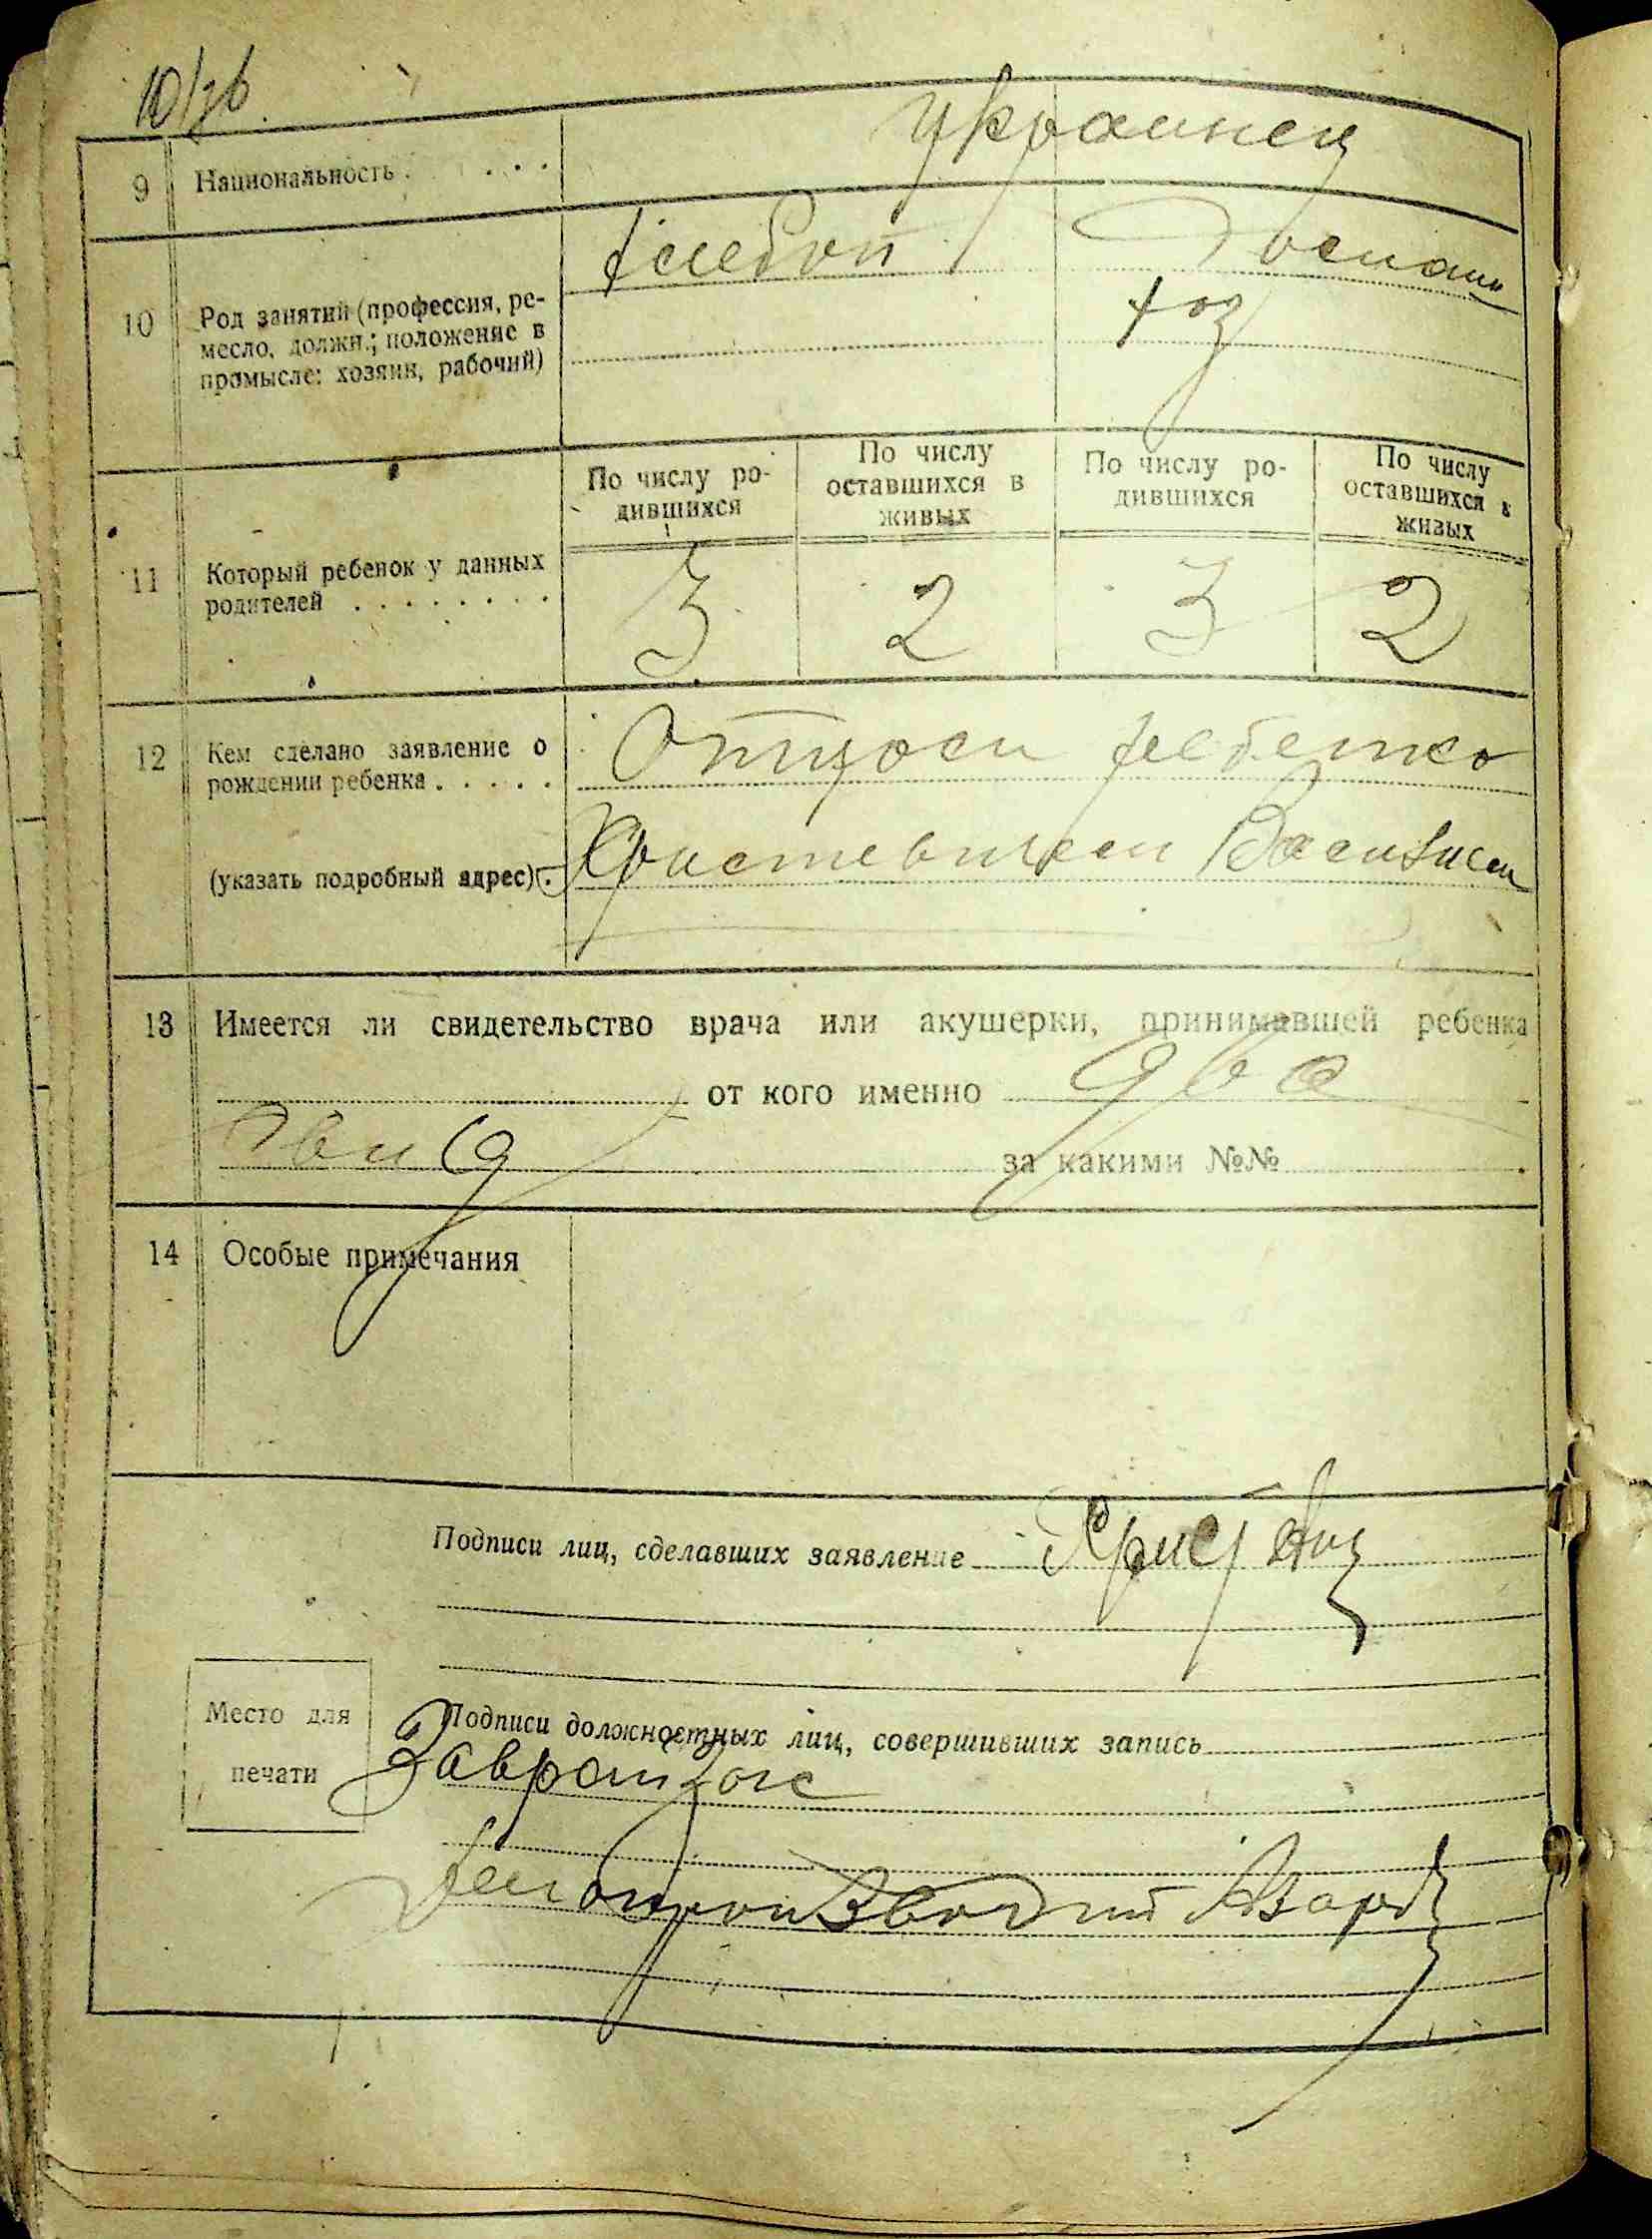 10/36
украинец
9 Национальность . . . . .
хлебоп Домаш
хоз
10 Род занятий (профессия, ре-
месло, должн.; положение в
промысле: хозяин, рабочий)
По числу ро-
дившихся
По числу
оставшихся в
живых
По числу ро-
дившихся
По числу
оставшихся в
живых
11 Который ребенок у данных
родителей . . . . . . . .
3 2 3 2
12 Кем сделано заявление о
рождении ребенка . . . . .
Отцом ребенка
(указать подробный адрес) .
Василием
13 Имеется ли свидетельство врача или акушерки, принимавшей ребенка
от кого именно два
свид за какими №№
14 Особые примечания
Подписи лиц, сделавших заявление
Место для
печати
Подписи должностных лиц, совершивших запись
Заврайзагс
Делопроизводит